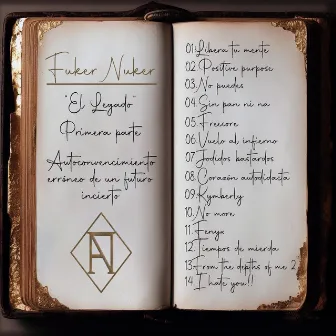 Fuker Nuker
"El Legado"
Primera parte
Autoconvencimiento
erróneo de un futuro
incierto
01.Libera tu mente
02.Positive purpose
03.No puedes
04.Sin pan ni na
05.Freecore
06.Vuelo al infierno
07.Jodidos bastardos
08.Corazón autodidacta
09.Kymberly
10.No more
11.Fenyx
12.Tiempos de mierda
13.From the depths of me 2
14.I hate you!!